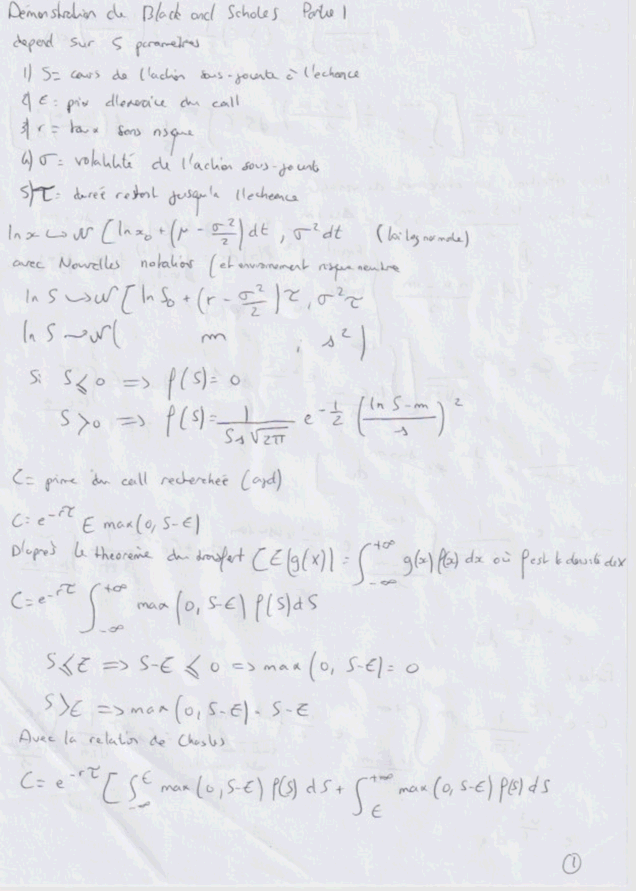 Démonstration de Black and Scholes Partie 1
depend sur 5 parametres
1) S= cours de l'action sous-jacente à l'echeance
2) E= prix d'exercice du call
3) r= taux sans risque
4) σ= volatilité de l'action sous-jacente
5) τ= durée restant jusqu'a l'echeance
ln x ↪ N [ln x₀ + (μ - σ²/2) dt , σ² dt (loi log normale)
avec Nouvelles notations (et environnement risque neutre
ln S ↪ N [ln S₀ + (r - σ²/2) τ, σ² τ
ln S ↪ N( m , s²)
Si S ≤ 0 => f(S) = 0
S > 0 => f(S) = 1/(S s √2π) e^(-1/2 ((ln S - m)/s)²)
C= prime du call recherchée (ajd)
C= e^(-rτ) E max(0, S-E)
D'après le theoreme du transfert [E(g(x)) = ∫_{-∞}^{+∞} g(x) f(x) dx où f est la densité de x
C= e^(-rτ) ∫_{-∞}^{+∞} max (0, S-E) f(S) dS
S ≤ E => S-E ≤ 0 => max (0, S-E) = 0
S > E => max (0, S-E) = S-E
Avec la relation de Chasles
C= e^(-rτ) [ ∫_{-∞}^{E} max (0, S-E) f(S) dS + ∫_{E}^{+∞} max (0, S-E) f(S) dS
1